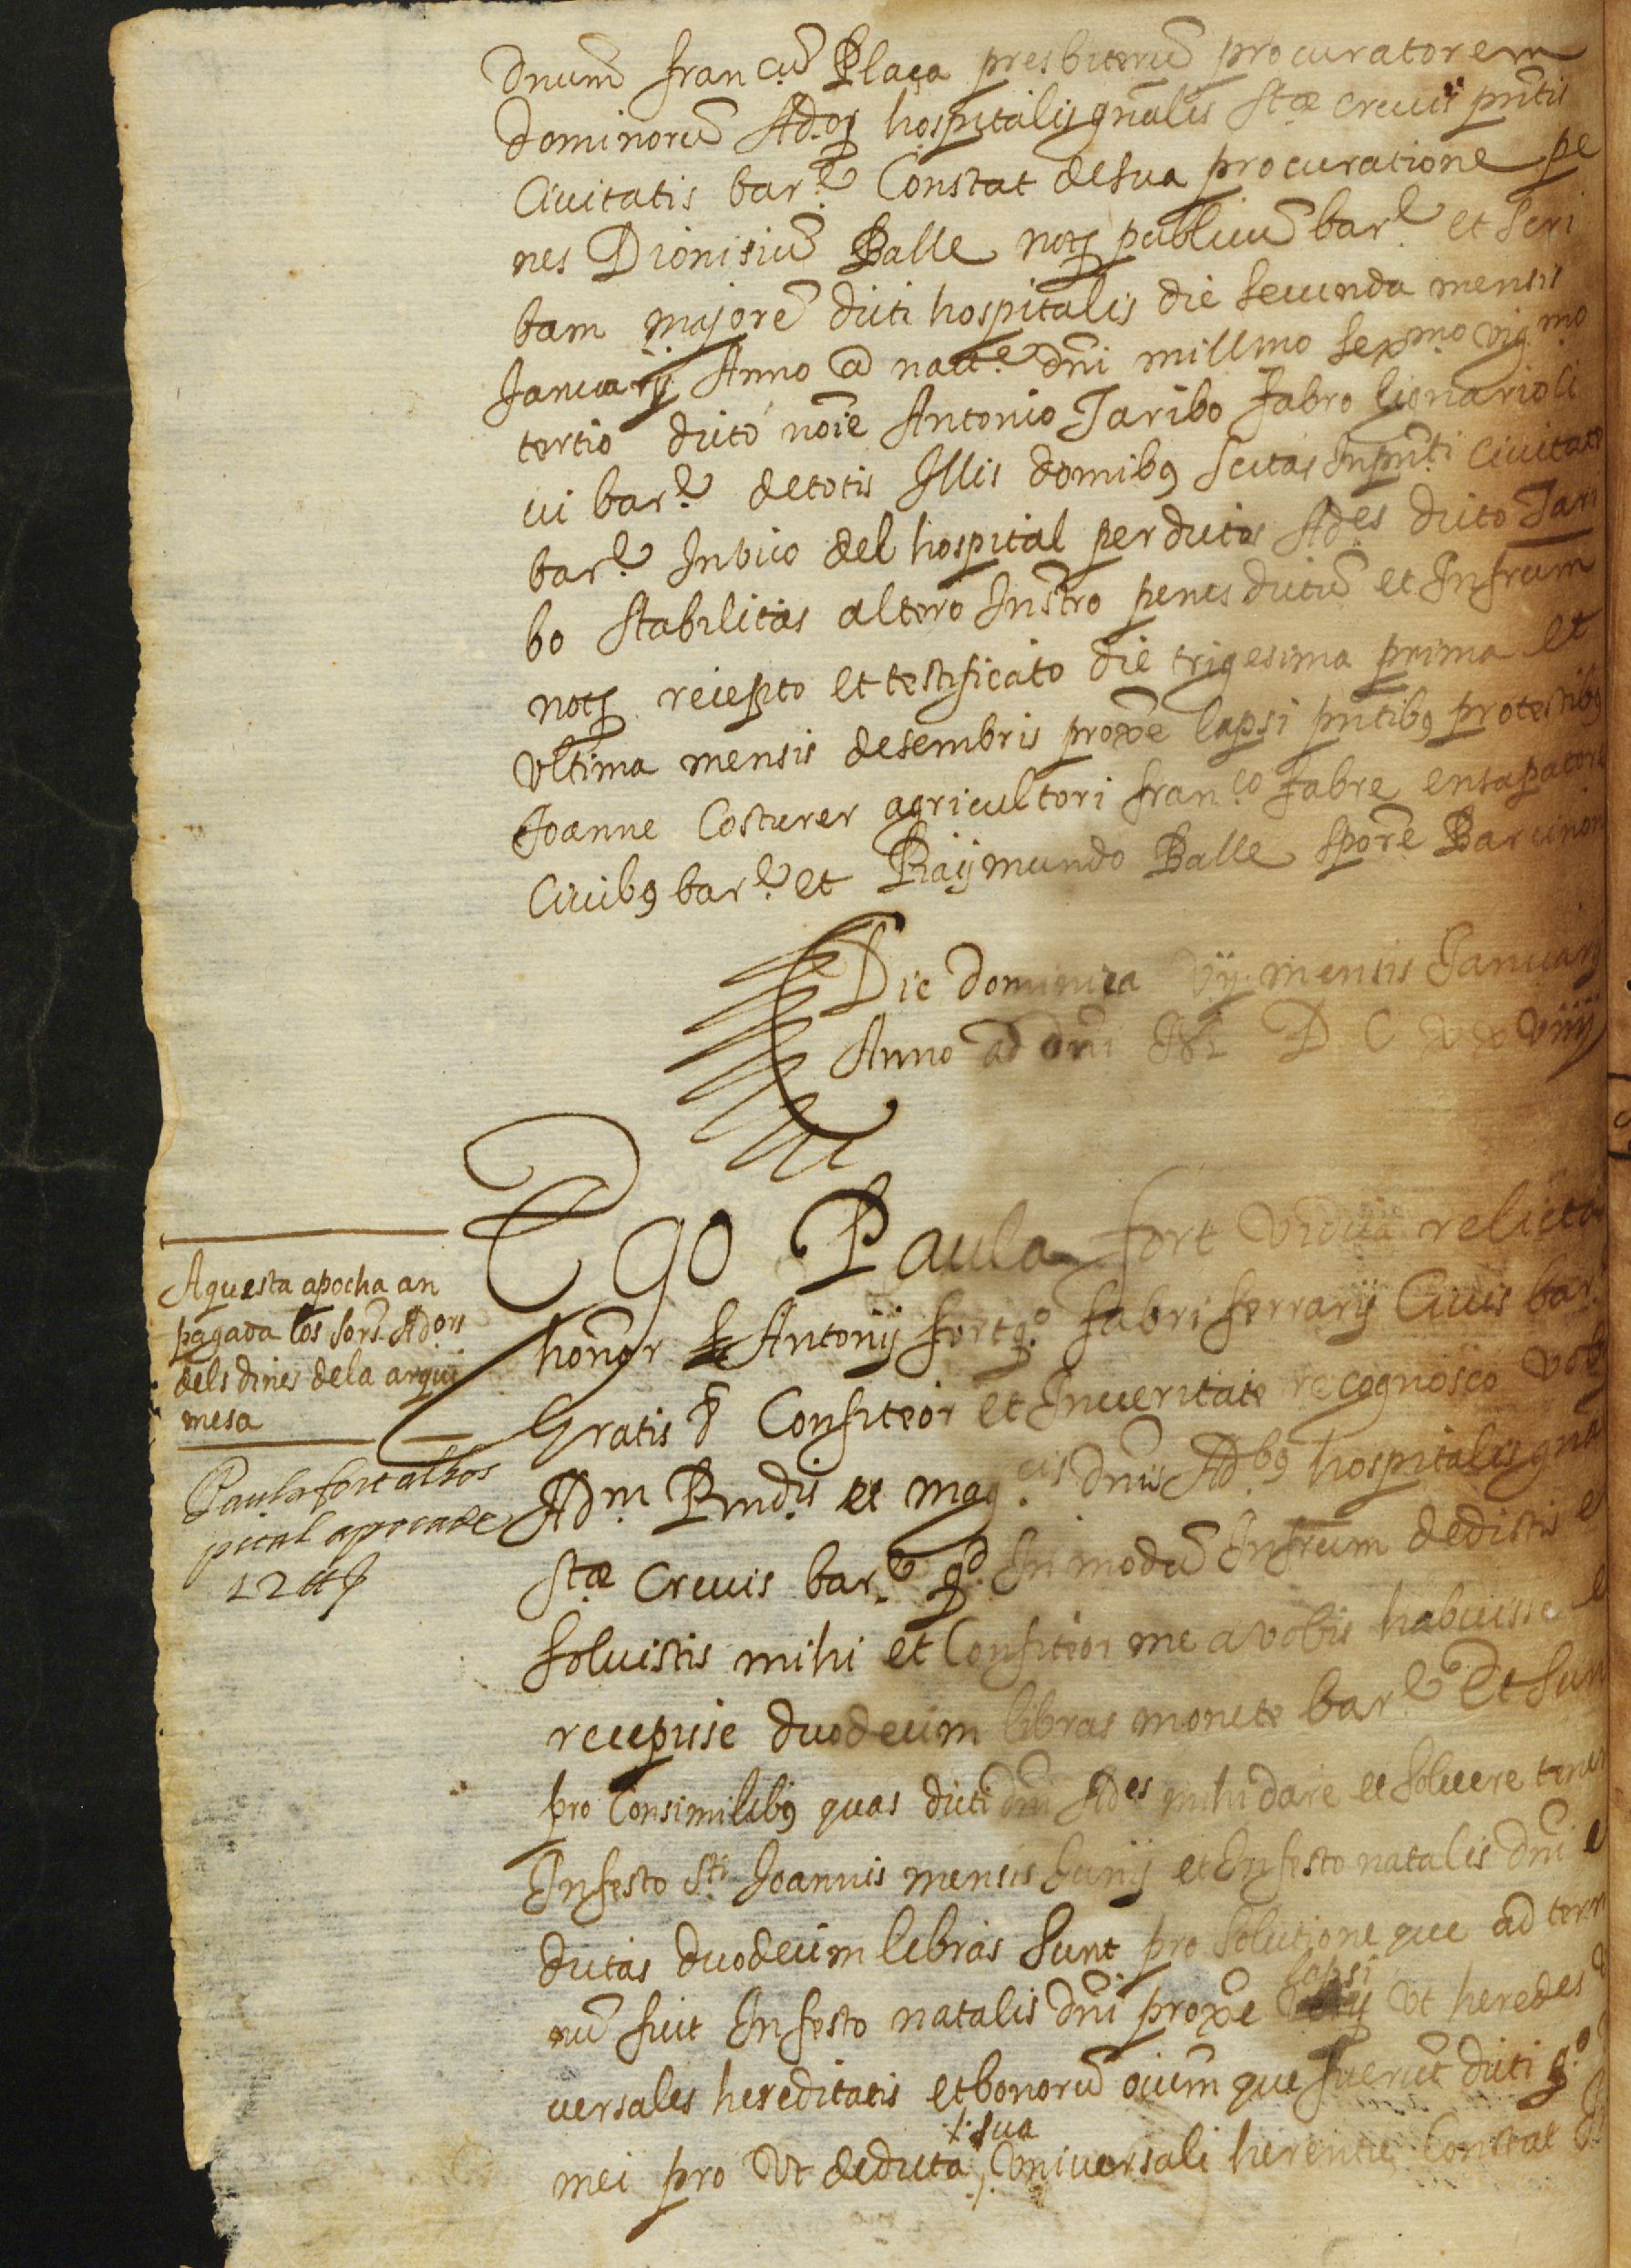 Dnum̄ francū Plaça presbiterū procuratorem
dominorū Ador͛ hospitalis gn̄alis Stæ crucis pn̄tis
Ciuitatis bar.e Constat desua procuratione pe
nes Dionisiū Balle not͛ publicū bar.e et scri
bam majorē dicti hospitalis die secunda mensis
Januarij Anno a natt.e dn̄i millmo sexmo vigmo
tertio dicto noīe Antonio Taribo fabro lignario ci
ui bar.e de totis Illis domibꝰ scitas Inpn̄ti Ciuitate
bar.e Invico del hospital per dictos Ad.es dicto Tari
bo stabilitas altero Instr̄o penes dictū et Infr̄um
not͛ recepto et testificato die trigesima prima et
vltima mensis desembris proxē lapsi pn̄tibꝰ pro testibꝰ
Joanne Costurer agricultori fran.co fabre ensapatore
Ciuibꝰ bar.e et Raijmundo Balle sporē Barcinon
Die dominica vij mensis Januarij
Anno a dn̄i M D C xx viiij
Ego Paula fort vidua relicta
honōr Antonij fort qº fabri ferrarij Ciuis bar.e
Gratis & Confiteor et Inveritate recognosco vobis
Adm Rmdis et mag.cis dnīs Ad.bꝰ hospitalis gnā
Stæ Crucis bar.e qd Inmodū Infr̄um dedistis e
soluistis mihi et Confiteor me a vobis habuisse e
recepisse duodecim libras monete bar.e Et sun
pro Consimilibꝰ quas dicti dn̄i Ad.es mihi dare et soluere tene
Infesto Sti Joannis mensis Junij et Infesto natalis dn̄i e
dictas duodecim libras sunt pro solutione que ad termi
nū fuit Infesto natalis dn̄i proxē lapsi vt heredes
uersales hereditatis et bonorū oium̄ que fuerūt dicti qº
mei pro vt deducta sua vniversali herentie Constat
Aquesta apocha an
pagada los sors Adors
dels dines dela arqui
mesa
Paula fort alhos
pital apocade
12 ℔